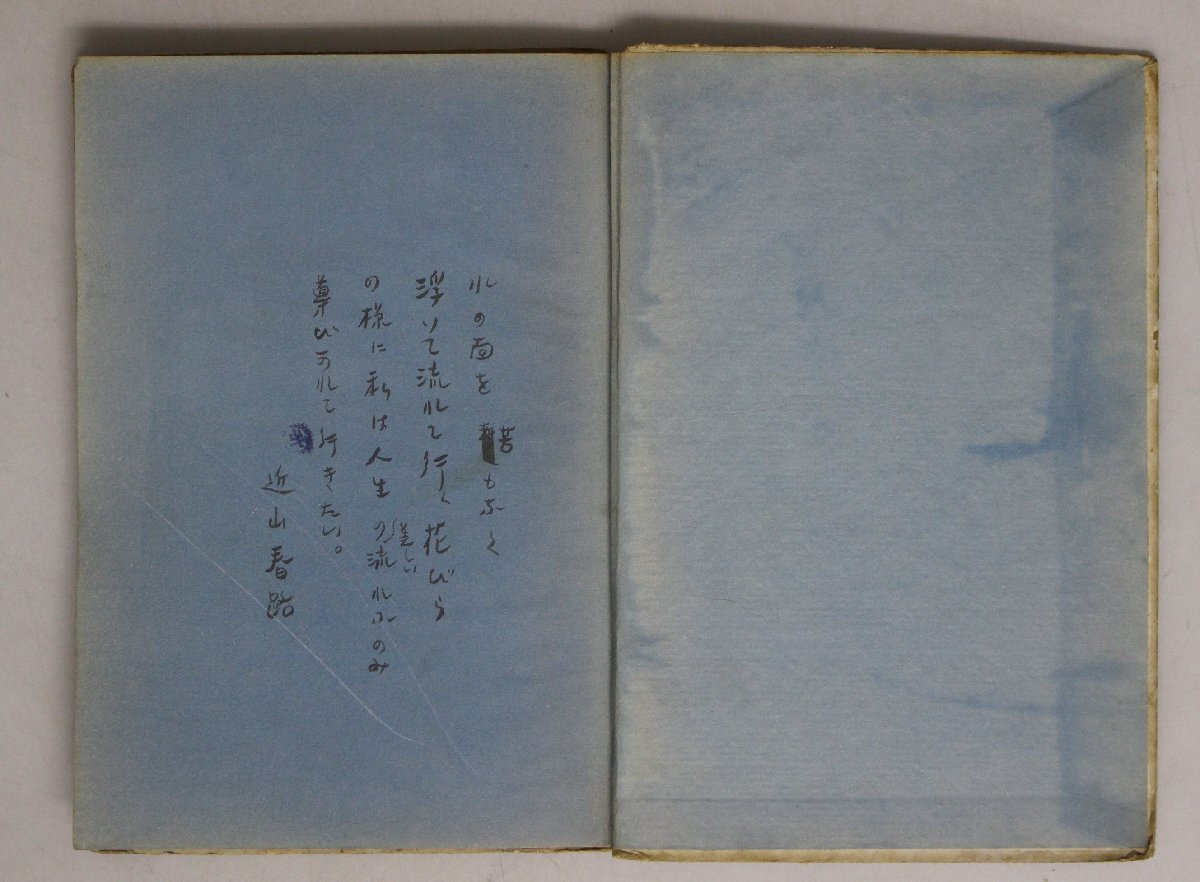 水の面を苦もなく
浮いて流れて行く花びら
の様に私は人生の流れ のみ
れて行きたい。
近山春路